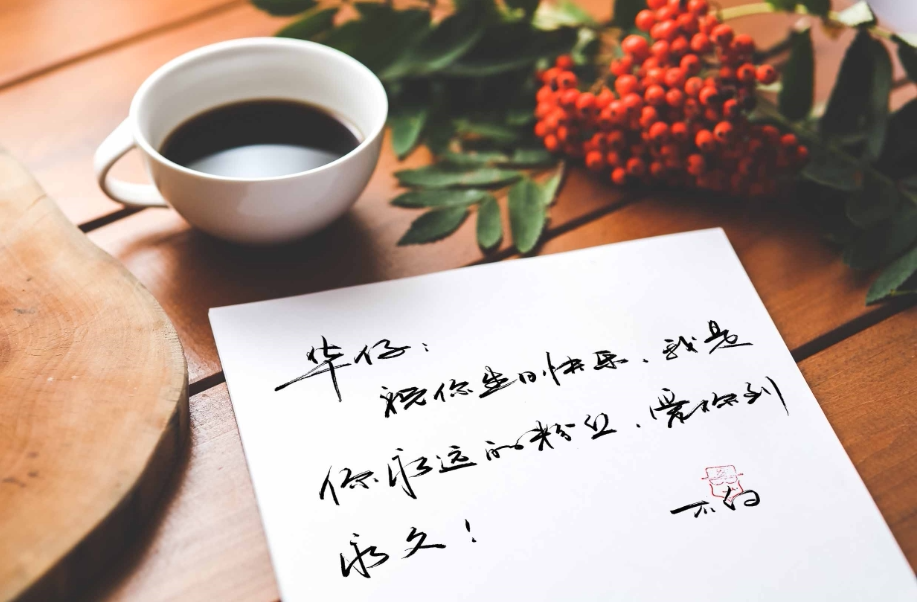 华仔：
祝你生日快乐，我是
你永远的粉丝，爱你到
永久！
不约